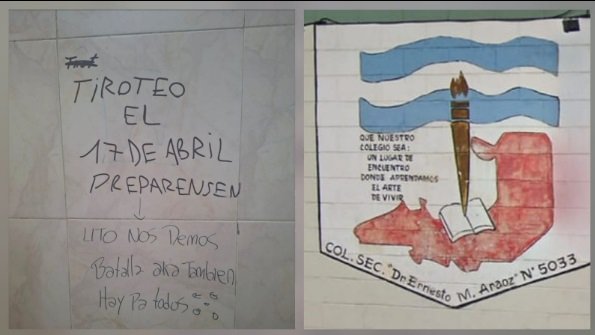 TiROTEO
EL
17 DE ABRIL
PREPARENSEN
LITO NOS Demos
Batalla aka Tambien
Hay Pa todos
QUE NUESTRO
COLEGIO SEA:
UN LUGAR DE
ENCUENTRO
DONDE APRENDAMOS
EL ARTE
DE VIVIR
COL. SEC. "Dr Ernesto M. Araoz" N° 5033